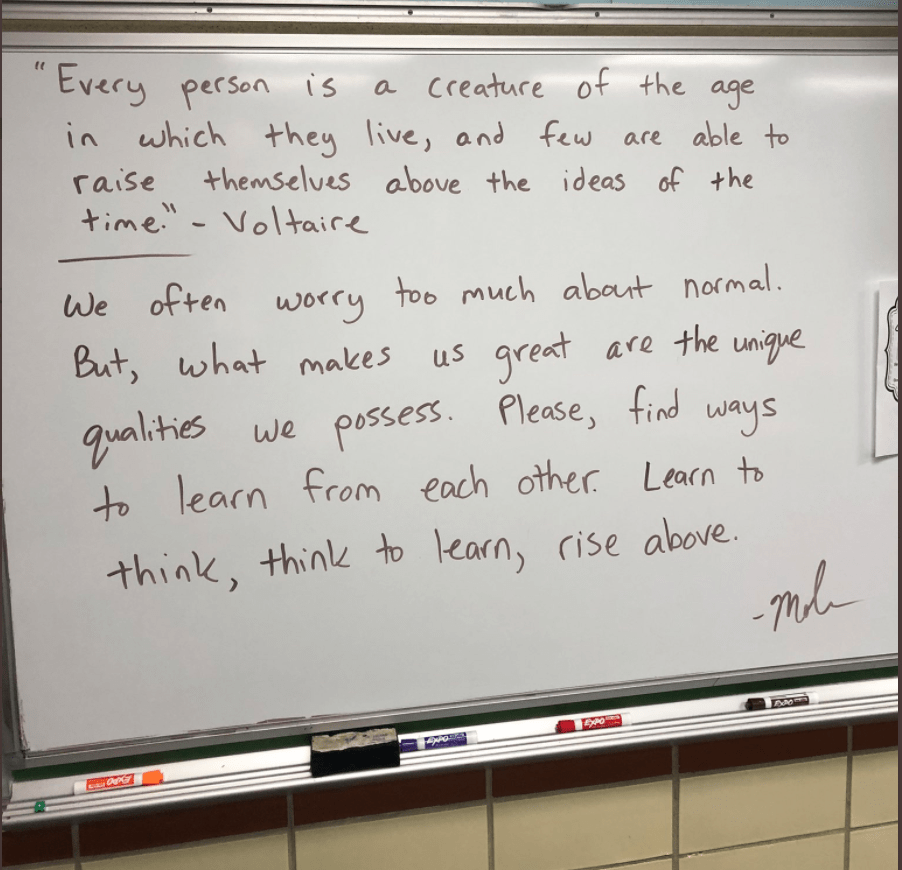 "Every person is a creature of the age
in which they live, and few are able to
raise themselves above the ideas of the
time." - Voltaire
We often worry too much about normal.
But, what makes us great are the unique
qualities we possess. Please, find ways
to learn from each other. Learn to
think, think to learn, rise above.
EXPO
EXPO
EXPO
EXPO